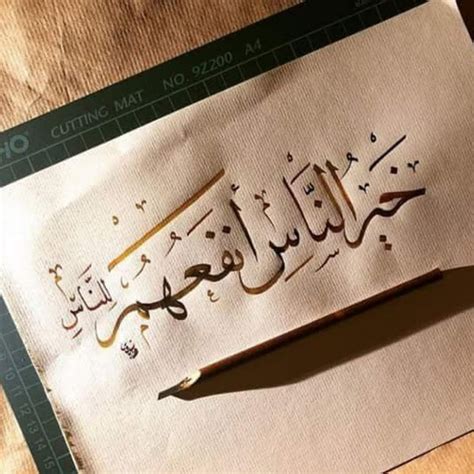 CUTTING MAT NO. 9Z200 A4
خَيْرُ النَّاسِ أَنْفَعُهُمْ لِلنَّاسِ